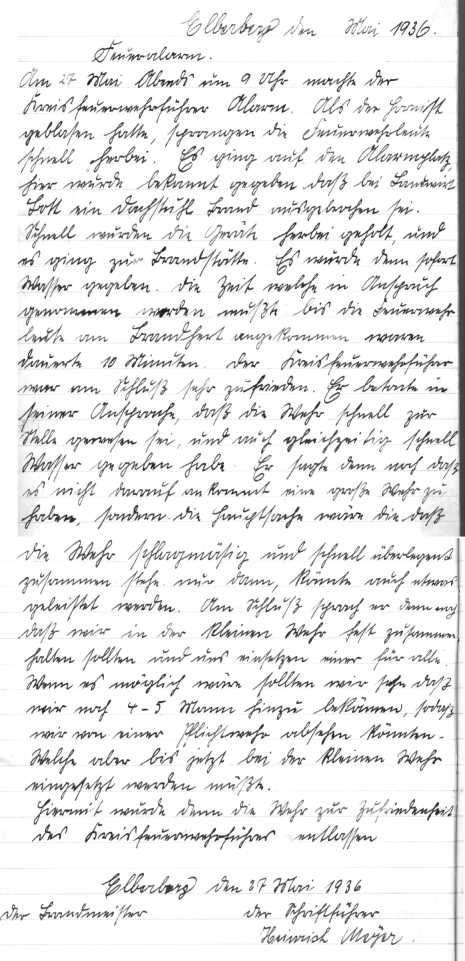 Elberberg den Mai 1936.
Feueralarm.
Am 27 Mai Abends um 9 Uhr machte der
Kreisfeuerwehrführer Alarm. Als der Hornist
geblasen hatte, sprangen die Feuerwehrleute
schnell herbei. Es ging auf den Alarmplatz,
hier wurde bekannt gegeben daß bei Landwirt
Lott ein Dachstuhl Brand ausgebrochen sei.
Schnell wurden die Geräte herbei geholt, und
es ging zur Brandstätte. Es wurde denn sofort
Wasser gegeben. Die Zeit welche in Anspruch
genommen werden mußte bis die Feuerwehr
leute am Brandhert angekommen waren
dauerte 10 Minuten. Der Kreisfeuerwehrführer
war am Schluß sehr zufrieden. Er betonte in
seiner Ansprache, daß die Wehr schnell zur
Stelle gewesen sei, und auch gleichzeitig schnell
Wasser gegeben habe. Er sagte denn noch daß
es nicht darauf ankommt eine große Wehr zu
haben, sondern die Hauptsache wäre die daß
die Wehr schlagmäsig und schnell überlegent
zusammen stehe nur dann, könnte auch etwas
geleistet werden. Am Schluß sprach er denn noch
daß wir in der kleinen Wehr fest zusammen
halten sollten und uns einsetzen einer für alle.
Wenn es möglich wäre sollten wir sehn daß
wir noch 4-5 Mann hinzu bekämen, sodaß
wir von einer Pflichtwehr absehen könnten.
Welche aber bis jetzt bei der kleinen Wehr
eingesetzt werden müßte.
Hiermit wurde denn die Wehr zur Zufriedenheit
des Kreisfeuerwehrführes entlassen
Elberberg den 27 Mai 1936
Der Brandmeister der Schriftführer
Heinrich Meyer.